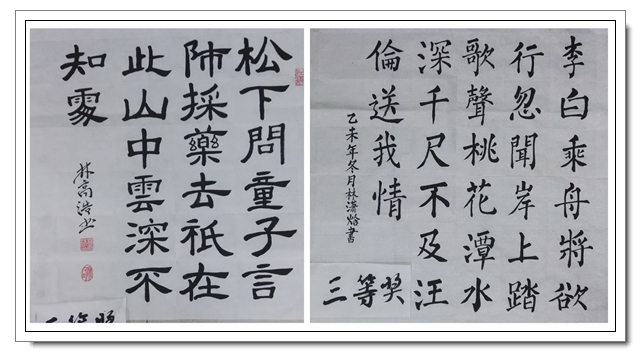 松下問童子言
師採藥去祇在
此山中雲深不
知處
林高浩书
李白乘舟將欲
行忽聞岸上踏
歌聲桃花潭水
深千尺不及汪
倫送我情
乙未年冬月林瀟焓書
三等奖